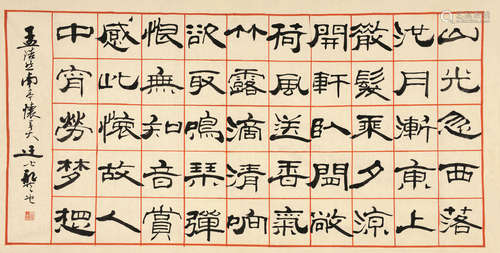 山光忽西落
池月漸東上
散髮乘夕涼
開軒臥閒敞
荷風送香氣
竹露滴清响
欲取鳴琴彈
恨無知音賞
感此懷故人
中宵勞梦想
孟浩然南亭懷辛大